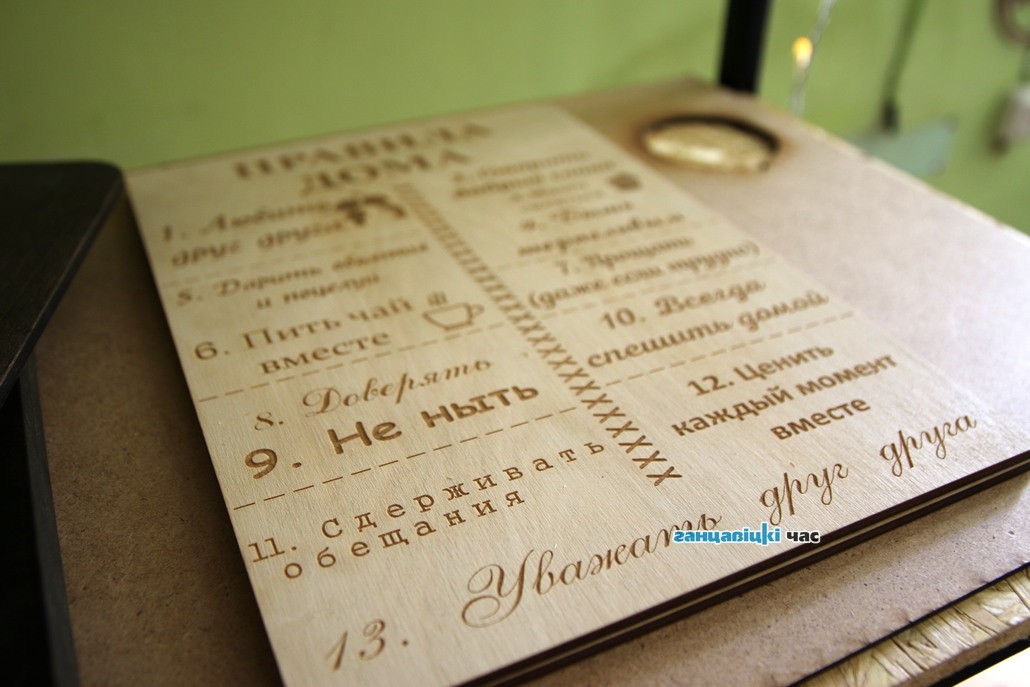 ПРАВИЛА
ДОМА
1. Любить
друг друга
2. Говорить
добрые слова
4. Быть
терпеливым
5. Дарить объятья
и поцелуи
7. Прощать
(даже если трудно)
6. Пить чай
вместе
10. Всегда
спешить домой
8. Доверять
9. Не ныть
12. Ценить
каждый момент
вместе
11. Сдерживать
обещания
13. Уважать друг друга
ганцавіцкі час